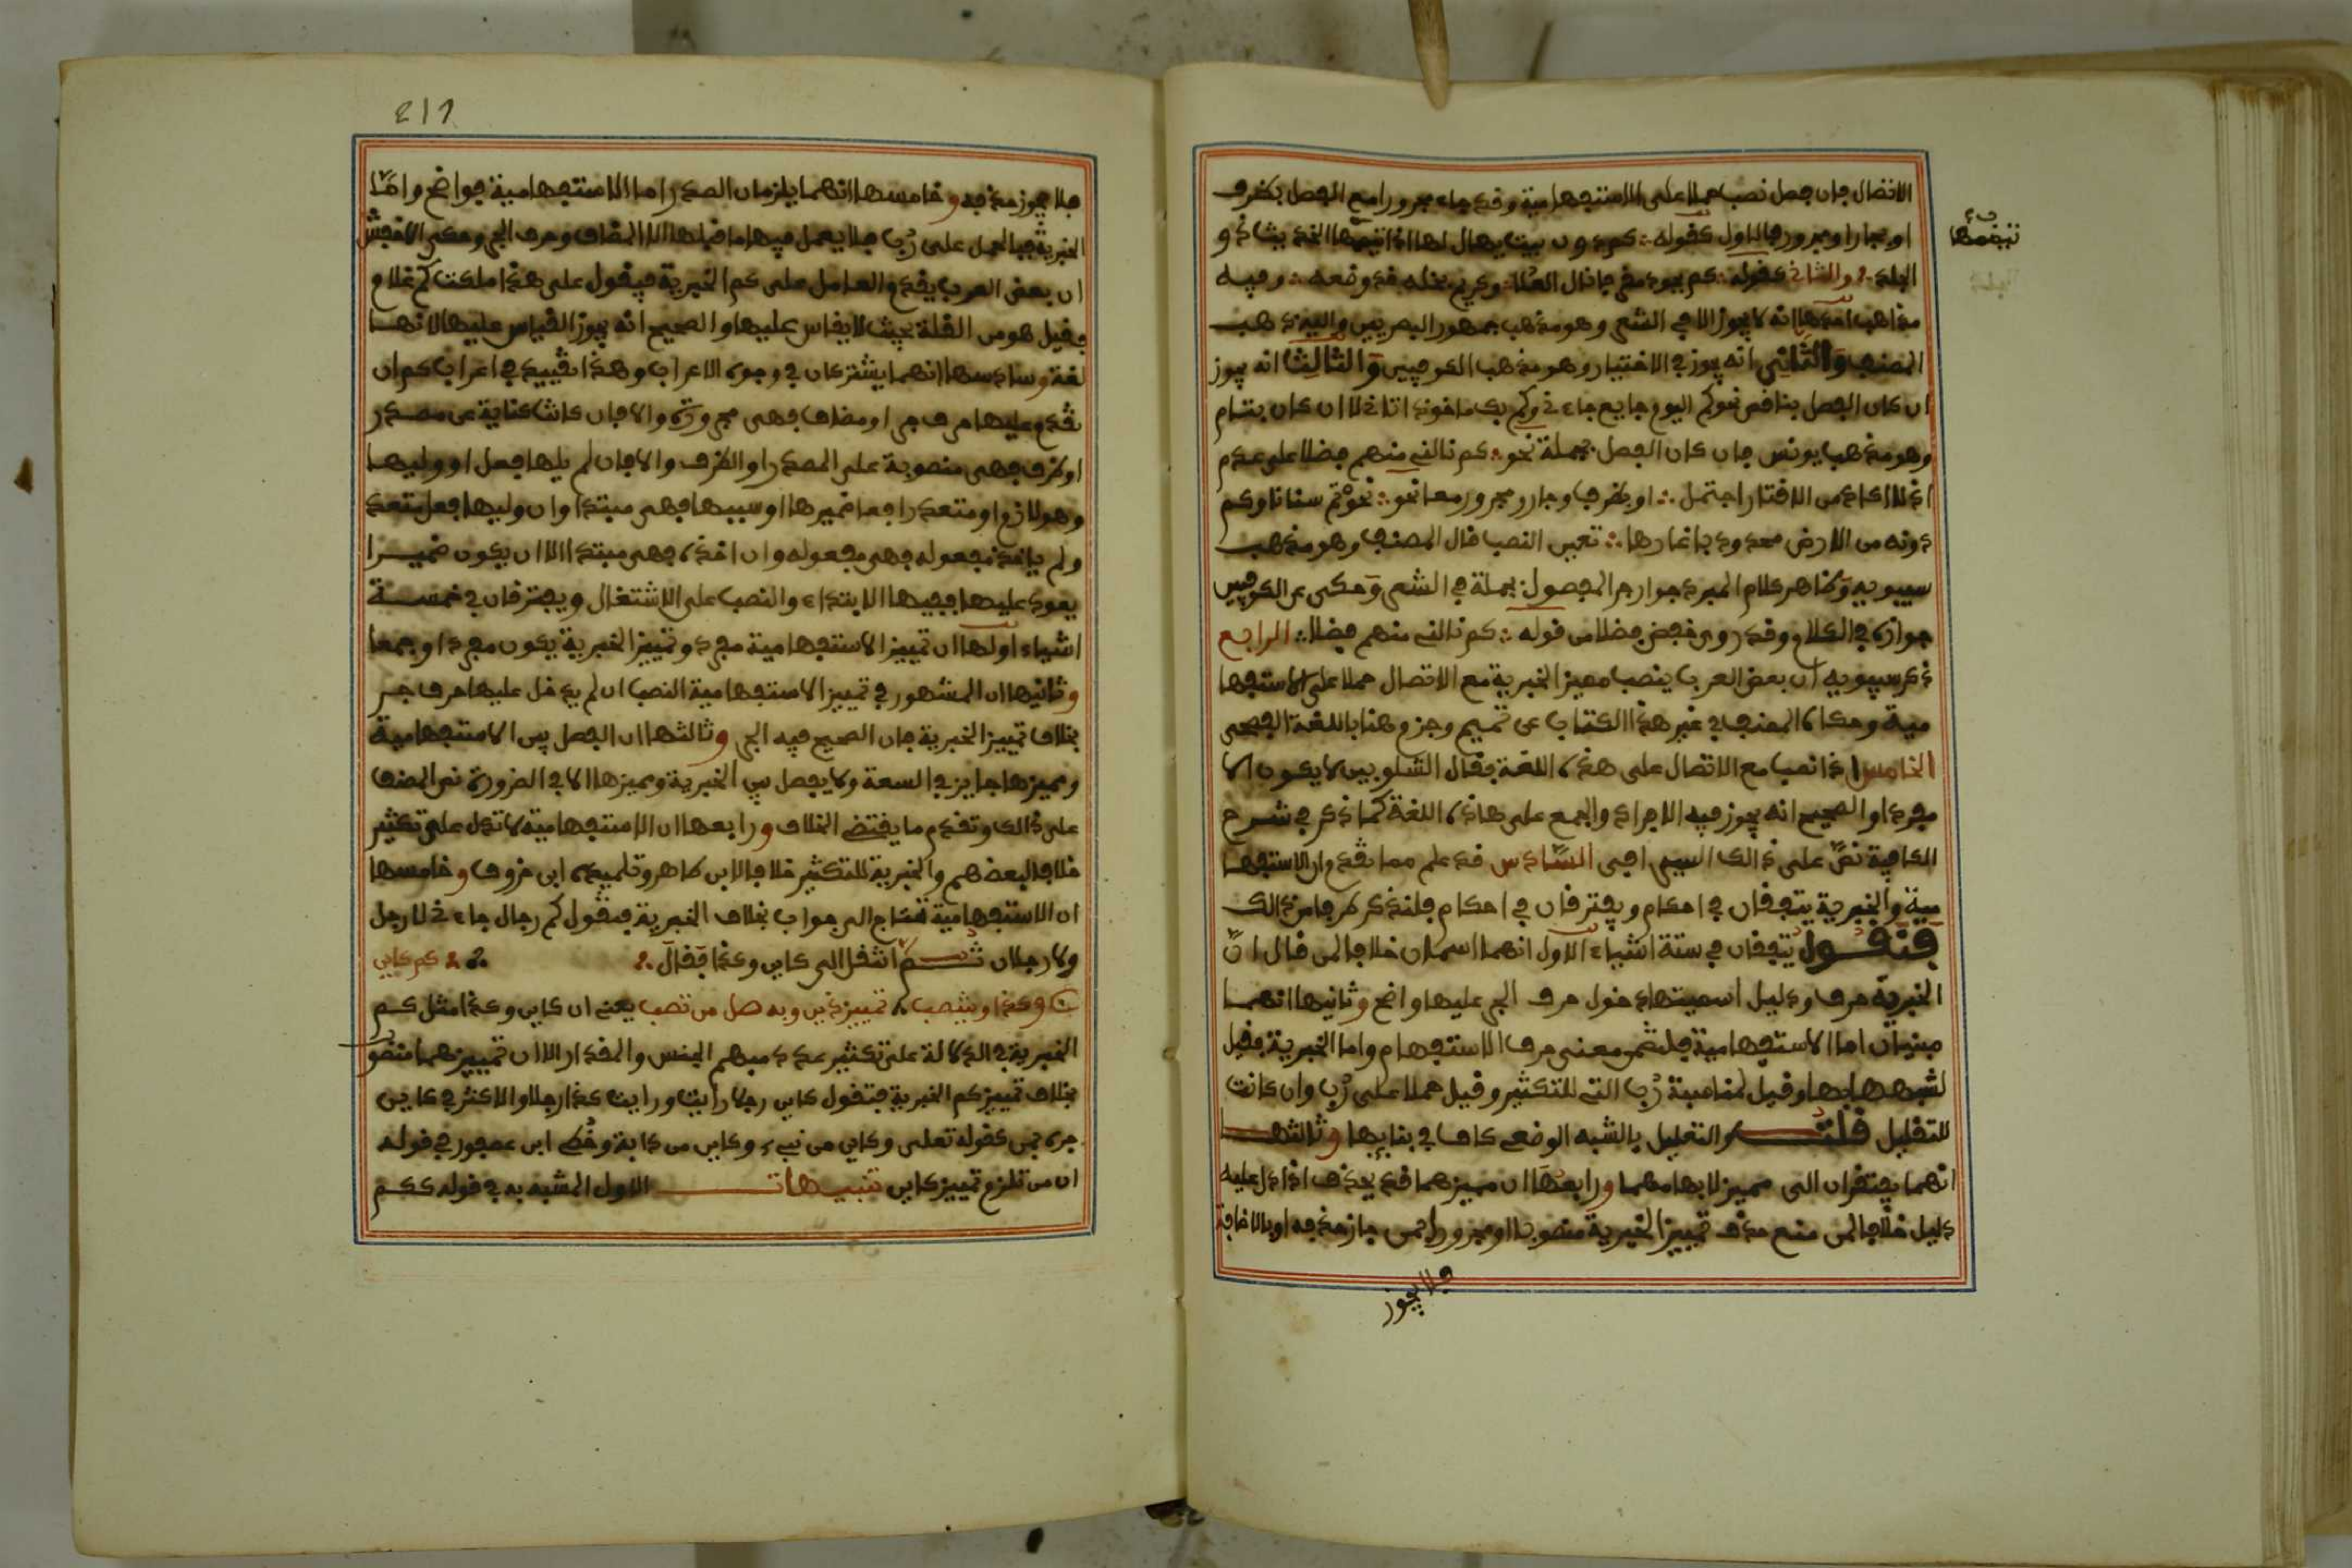 الاتصال فإن فصل نصب حملا على الاستفهامية وقد جاء مجرورا مع الفصل بظرف
او بجار ومجرور فالاول كقوله كم دون بيت يهال لها اذا تيممها الخد
تيممها
الجلد والثاني كقوله كم بجود مقرف نال العلا وكريم بخله قد وضعه وفيه
مذاهب احدها انه لا يجوز الا في الشعر وهو مذهب جمهور البصريين واليه ذهب
المصنف والثاني انه يجوز في الاختيار وهو مذهب الكوفيين والثالث انه يجوز
ان كان الفصل بناقص نحو كم اليوم جايع جاءني وكم بك ماخوذ اتاني لا ان كان بتام
وهو مذهب يونس فان كان الفصل بجملة نحو كم نالني منهم فضلا على عدم
اذ لا اكاد من الاقتار احتمل او بظرف وجار ومجرور معا نحو تؤم سنانا وكم
دونه من الارض محدودبا غارها تعين النصب قال المصنف وهو مذهب
سيبويه وظاهر كلام المبرد جواز جر المفصول بجملة في الشعر وحكى عن الكوفيين
جوازه في الكلام وقد روي خفض فضلا من قوله كم نالني منهم فضلا الرابع
ذكر سيبويه ان بعض العرب ينصب مميز الخبرية مع الاتصال حملا على الاستفها
مية وحكاه المصنف في غير هذا الكتاب عن تميم وجزم هنا باللغة الفصحى
الخامس اذا نصب مع الاتصال على هذه اللغة فقال الشلوبين لا يكون الا
مفردا والصحيح انه يجوز فيه الافراد والجمع على هاذه اللغة كما ذكر في شرح
الكافية نص على ذالك السيرافي السادس قد علم مما تقدم ان الاستفها
مية والخبرية يتفقان في احكام ويفترقان في احكام فلنذكر طرفا من ذالك
فنقول يتفقان في ستة اشياء الاول انهما اسمان خلافا لمن قال ان
الخبرية حرف ودليل اسميتها دخول حرف الجر عليها واضح وثانيها انهما
مبنيتان اما الاستفهامية فلتضمن معنى حرف الاستفهام واما الخبرية فقيل
لشبهها بها وقيل لمناسبة رب التي للتكثير وقيل حملا على رب وان كانت
للتقليل قلت والتعليل بالشبه الوضعي كاف في بنايها وثالثها
انهما يفتقران الى مميز لابهامهما ورابعها ان مميزهما قد يحذف اذا دل عليه
دليل خلافا لمن منع حذف تمييز الخبرية منصوبا او مجرورا بمن جاز حذفه او بالاضافة
فلا يجوز
فلا يجوز حذفه وخامسها انهما يلزمان الصدر اما الاستفهامية فواضح واما
الخبرية فبالحمل على رب فلا يعمل فيها ما قبلها الا المضاف وحرف الجر وحكى الاخفش
ان بعض العرب يقدم العامل على كم الخبرية فيقول على هذا ملكت كم غلام
فقيل هو من القلة بحيث لا يقاس عليها والصحيح انه يجوز القياس عليها لانها
لغة وسادسها انهما يشتركان في وجوه الاعراب وهذا تقييد في اعراب كم ان
تقدم عليها حرف جر او مضاف فهي مجرورة والا فان كانت كناية عن مصدر
او ظرف فهي منصوبة على المصدر او الظرف والا فان لم يلها فعل او وليها
وهو لازم او متعد رافعا ضميرها او سببيها فهي مبتدا وان وليها فعل متعد
ولم ياخذ مفعوله فهي مفعوله وان اخذه فهي مبتدا الا ان يكون ضميرا
يعود عليها ففيها الابتداء والنصب على الاشتغال ويفترقان في خمسة
اشياء اولها ان تمييز الاستفهامية مفرد وتمييز الخبرية يكون مفردا وجمعا
وثانيها ان المشهور في تمييز الاستفهامية النصب ان لم يدخل عليها حرف جر
بخلاف تمييز الخبرية فان الصحيح فيه الجر وثالثها ان الفصل بين الاستفهامية
ومميزها جايز في السعة ولا يفصل بين الخبرية ومميزها الا في الضرورة نص المصنف
على ذالك وتقدم ما يقتضي الخلاف ورابعها ان الاستفهامية لا تدل على تكثير
خلافا لبعضهم والخبرية للتكثير خلافا لابن طاهر وتلميذه ابن خروف وخامسها
ان الاستفهامية تحتاج الى جواب بخلاف الخبرية فتقول كم رجال جاءني لا رجل
ولا رجلان ثم انتقل الى كاين وكذا فقال كم كاين
وكذا وينتصب تمييز ذين وبه صل من تصب يعني ان كاين وكذا مثل كم
الخبرية في الدلالة على تكثير عدد مبهم الجنس والمقدار الا ان تمييزهما منصو
بخلاف تمييز كم الخبرية فتقول كاين رجلا رايت ورايت كذا رجلا والاكثر في كاين
جره بمن كقوله تعلى وكاين من نبيء وكاين من دابة ابن عصفور في قوله
ان من تلزم تمييز كاين تنبيهات الاول المشبه به في قوله ككم